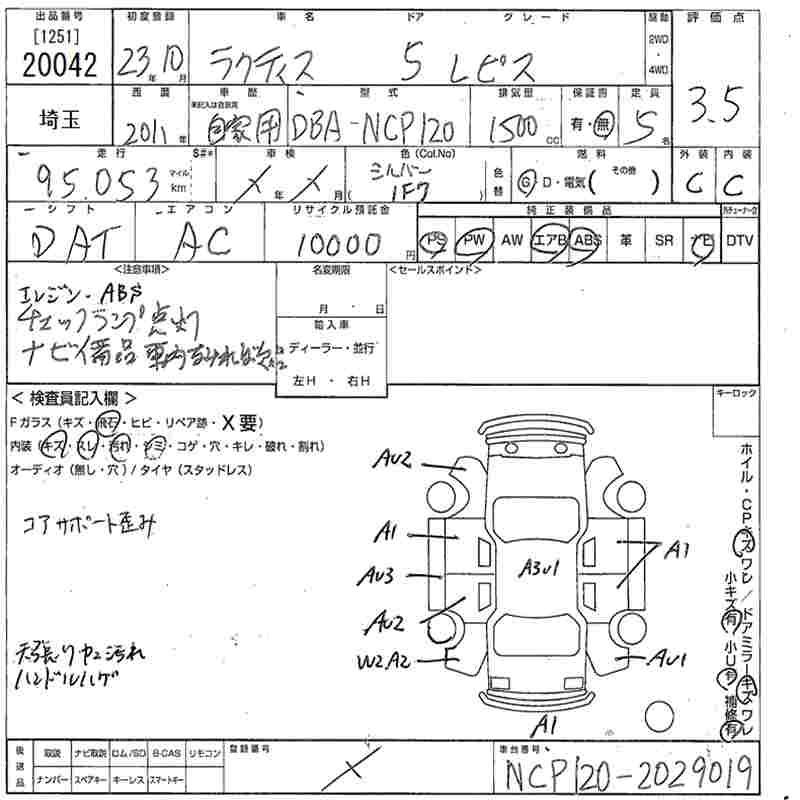 出品番号 初度登録 車名 ドア グレード 駆動 評価点
[1251]
20042 23年10月 ラクティス 5 レピス 2WD・4WD 3.5
西暦 車歴 型式 排気量 保証書 定員
埼玉 2011年 未記入は自家用 自家用 DBA-NCP120 1500cc 有・無 5名
走行 S#* 車検 色(Col.No) 燃料 外装 内装
95,053 マイル km ╱年╱月 シルバー (1F7) 色替 G・D・電気( その他 ) C C
シフト エアコン リサイクル預託金 純正装備品
DAT AC 10000円 PS PW AW エアB ABS 革 SR ナビ DTV
<注意事項> 名変期限 <セールスポイント>
エンジン・ABS
チェックランプ点灯 月・日
輸入車
ナビイ備品車両 ディーラー・並行
左H・右H
<検査員記入欄> キーロック
Fガラス(キズ・飛石・ヒビ・リペア跡・X要)
内装(キズ・スレ・汚れ・シミ・コゲ・穴・キレ・破れ・割れ)
オーディオ(無し・穴)/タイヤ(スタッドレス)
コアサポート歪み
天張り中こ汚れ
ハンドルハゲ
AU2
A1 A1
A3U1
AU3
AU2
W2A2 AU1
A1
ホイル・CPキズワレ/ドアミラーキズワレ
小キズ有 小U有 補修有
後送品 取説 ナビ取説 ロム/SD B-CAS リモコン 登録番号 車台番号
ナンバー スペアキー キーレス スマートキー NCP120-2029019